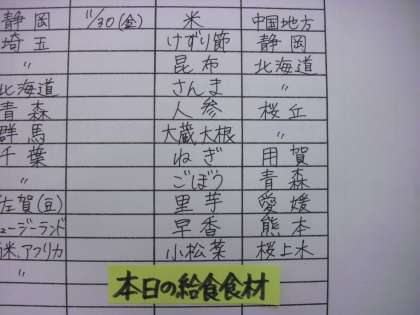 静岡 11/30(金) 米 中国地方
埼玉 けずり節 静岡
〃 昆布 北海道
北海道 さんま 〃
青森 人参 桜丘
群馬 大蔵大根 〃
千葉 ねぎ 用賀
〃 ごぼう 青森
佐賀(豆) 里芋 愛媛
ュージーランド 早香 熊本
米,アフリカ 小松菜 桜上水
〃
本日の給食食材